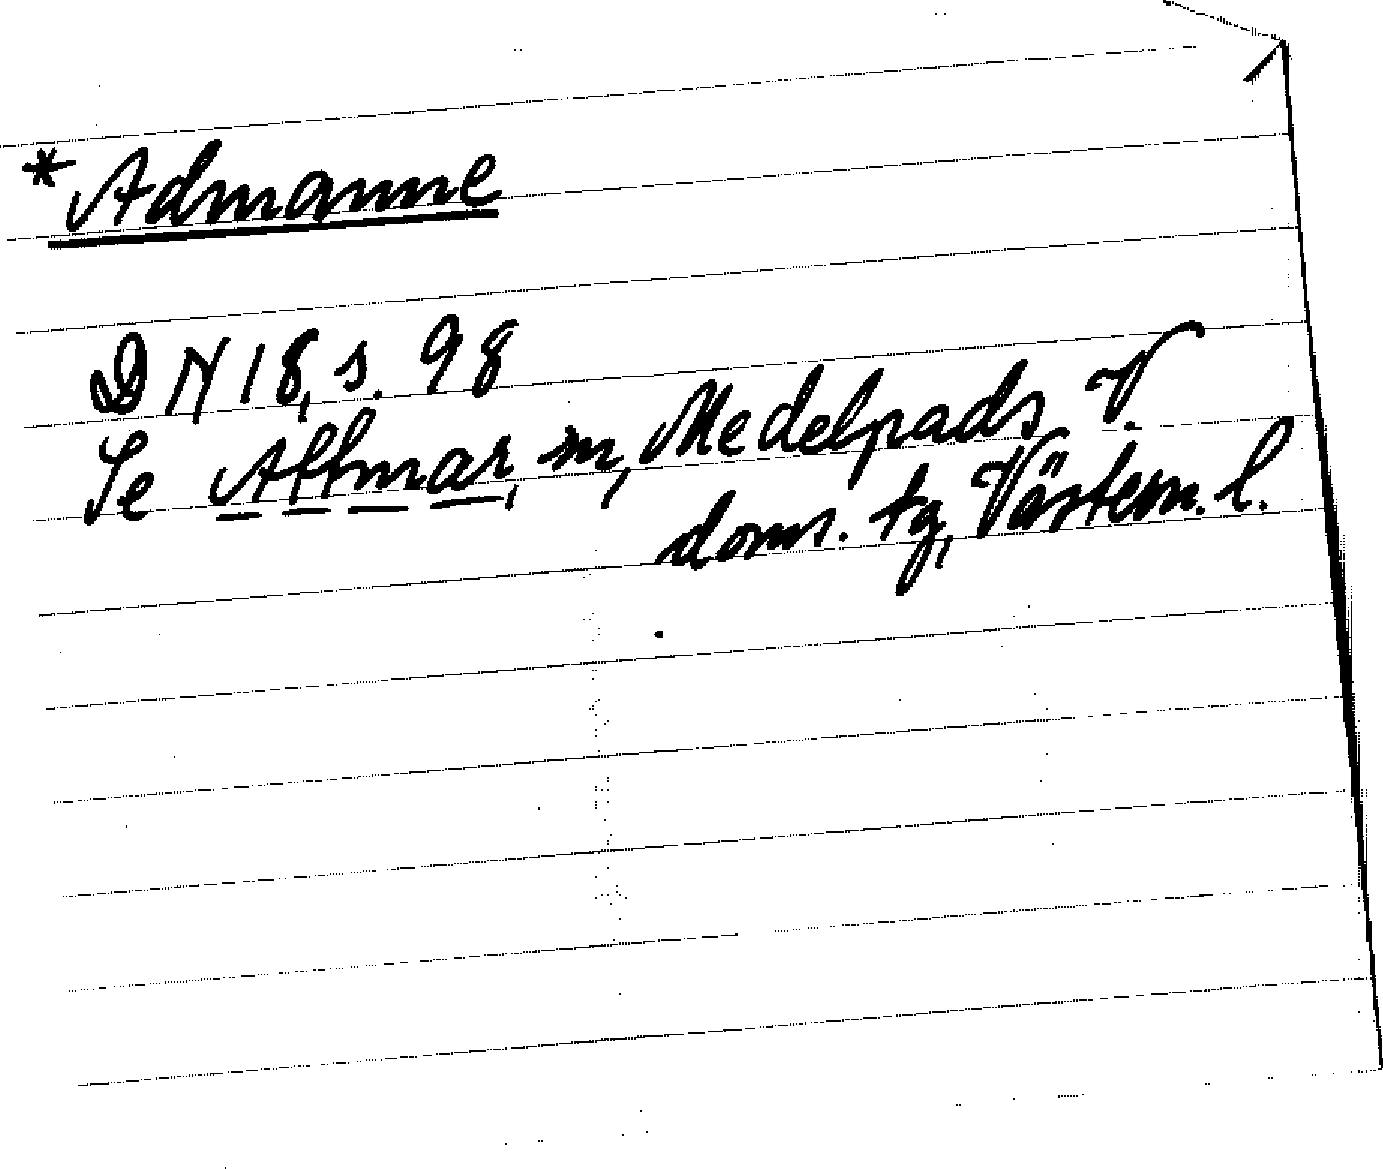 *Admanne
DN 18, s. 98
Se Attmar, sn, Medelpads V.
doms. tg, Västern. l.